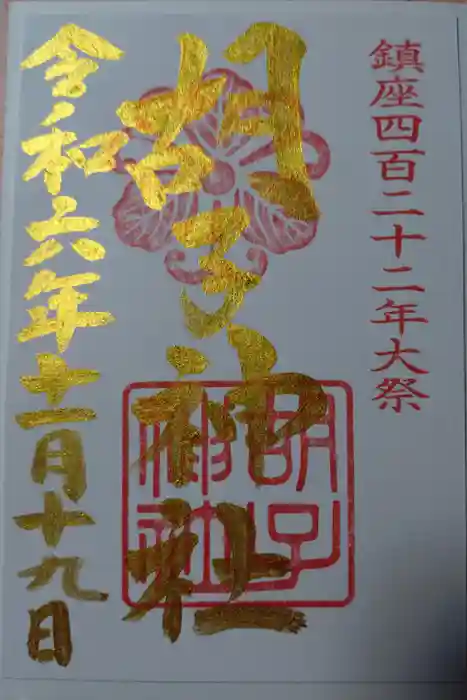 鎮座四百二十二年大祭
胡子神社
胡子
神社
令和六年十一月十九日